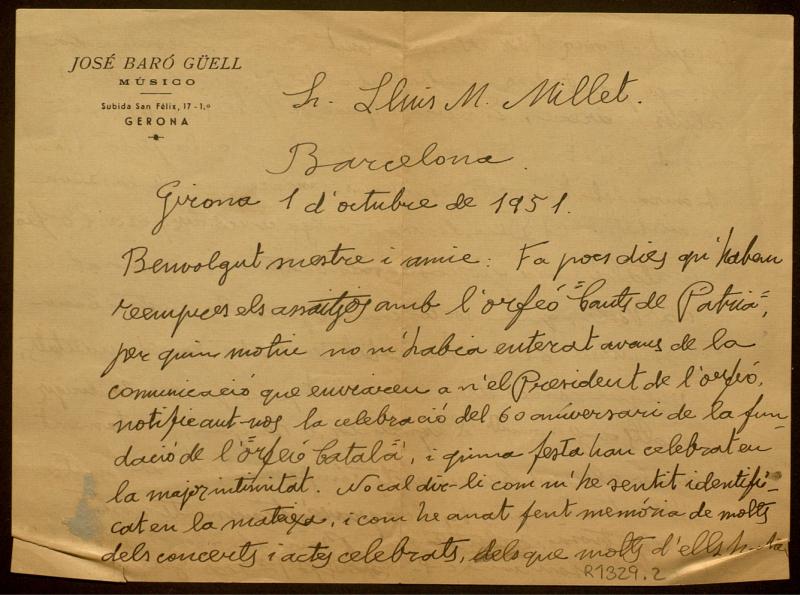 JOSÉ BARÓ GÜELL
MÚSICO
Subida San Félix, 17 - 1.º
GERONA
Sr. Lluis M. Millet.
Barcelona.
Girona 1 d'octubre de 1951.
Benvolgut mestre i amic: Fa pocs dies qu'habem
reempres els assaitjos amb l'orfeó "Cants de Patria",
per quin motiu no m'habia enterat avans de la
comunicació que enviareu a n'el President de l'orfeó,
notificant-nos la celebració del 60 aniversari de la fun-
dació de l'"Orfeó Català", i quina festa han celebrat en
la major intimitat. No cal dir-li com m'he sentit identifi-
cat en la mateixa, i com he anat fent memória de molts
dels concerts i actes celebrats, dels que molts d'ells
R1329.2